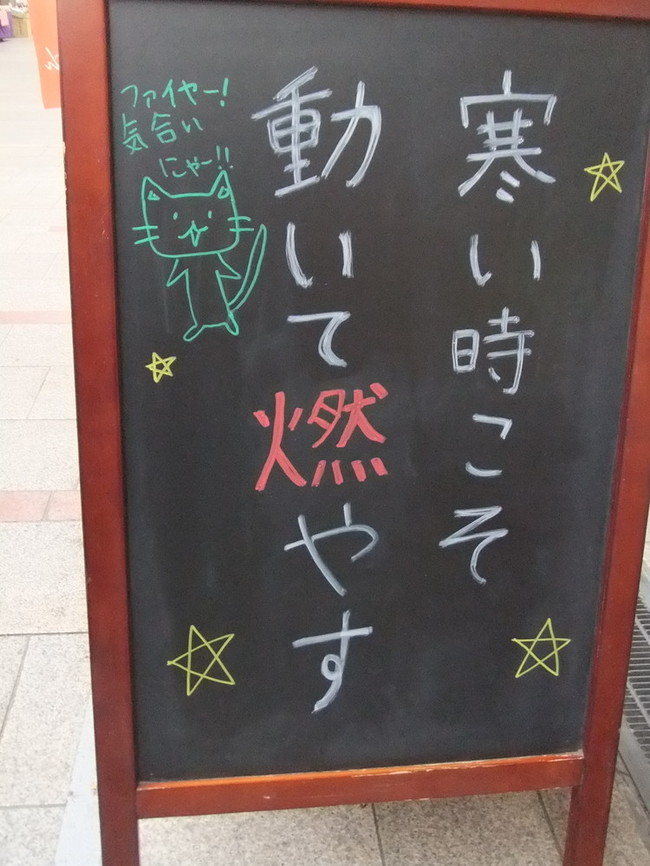 寒い時こそ
動いて燃やす
ファイヤー!
気合い
にゃー!!